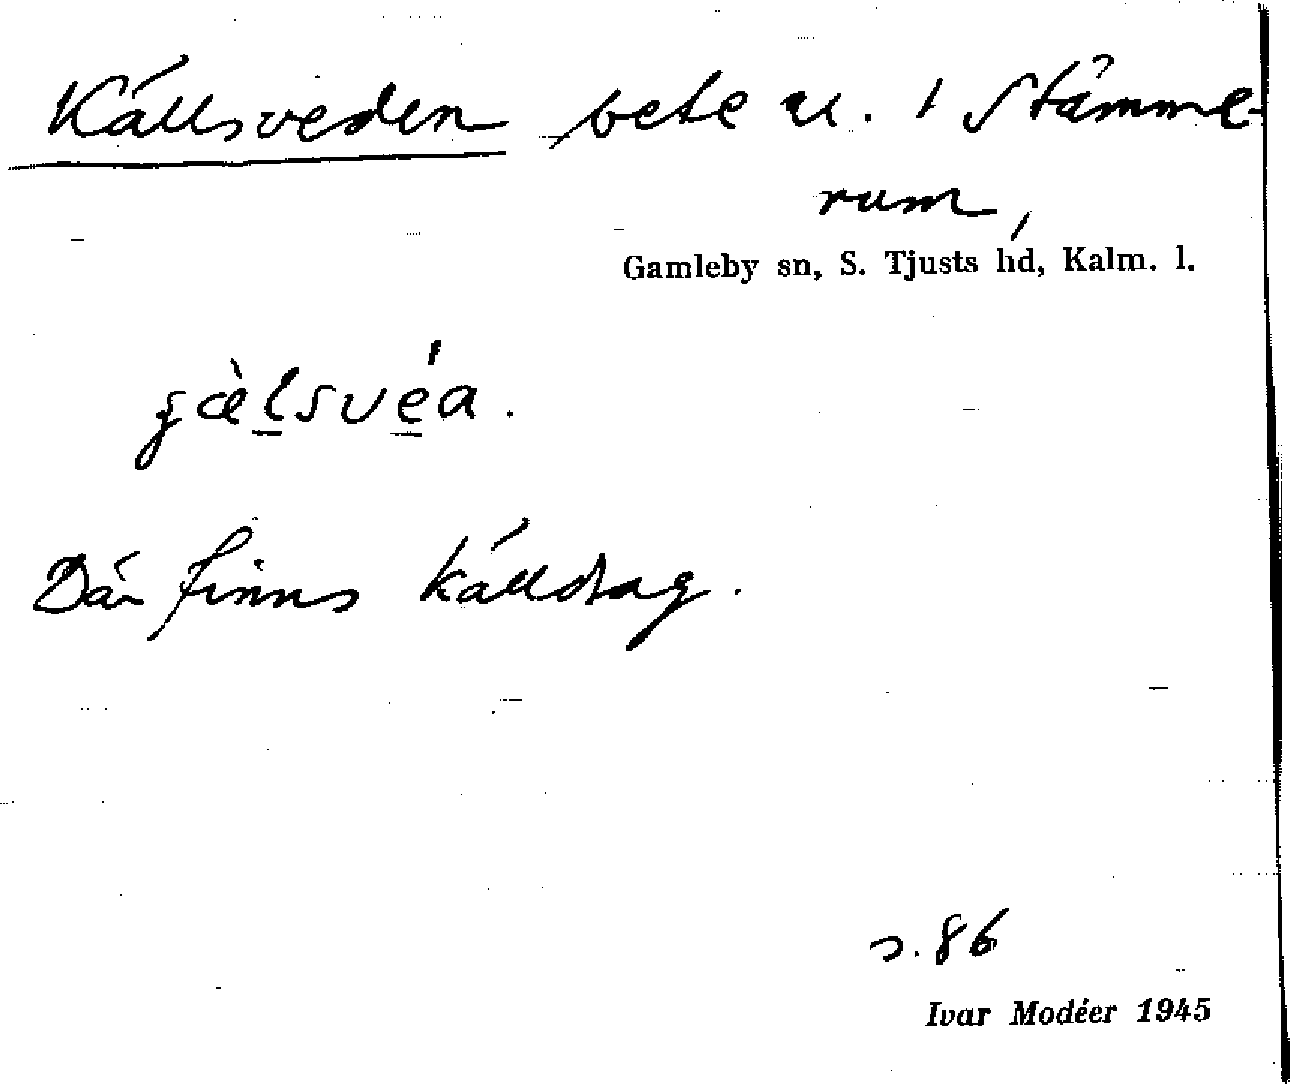 Källsveden, bete u. i Stämme-
rum,
Gamleby sn, S. Tjusts hd, Kalm. l.
Där finns källdrag.
s. 86
Ivar Modéer 1945